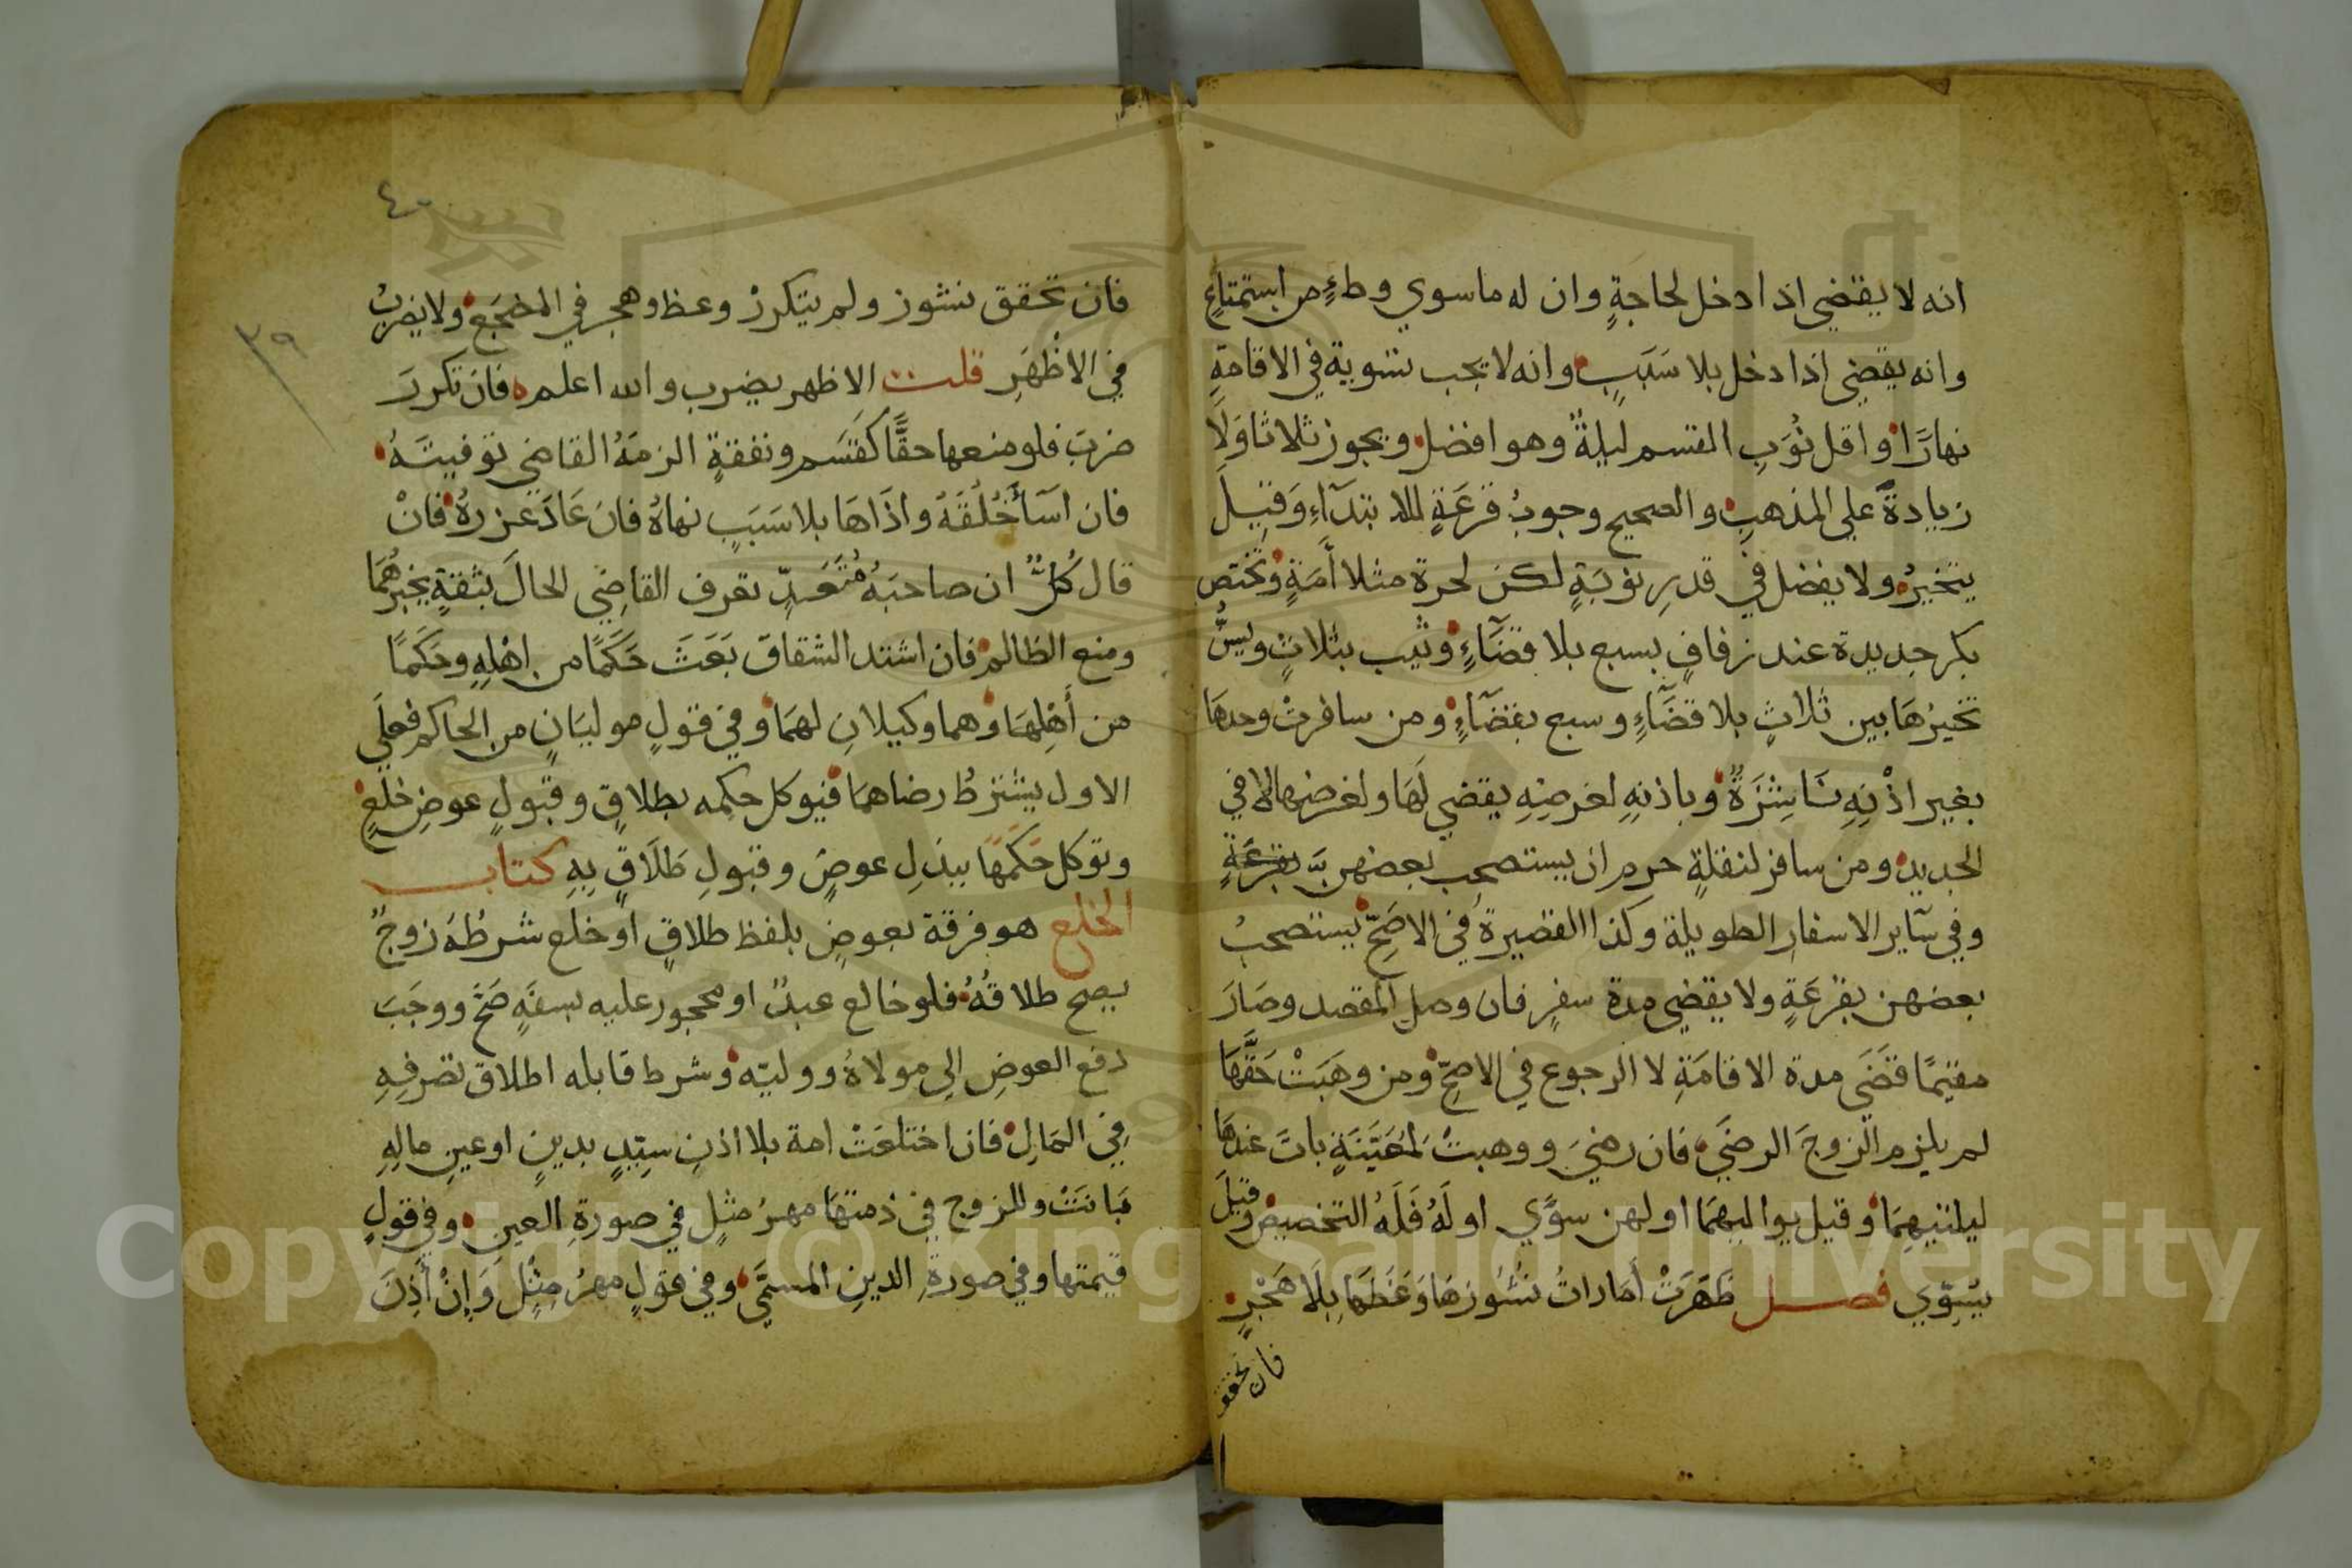 انه لا يقضي اذا دخل لحاجةٍ وان له ما سوي وطءٍ من استمتاعٍ
وانه يقضي اذا دخل بلا سَبَبٍ وانه لا تجب تسوية في الاقامةِ
نهارًا واقل نُوَبِ القسم ليلةٌ وهو افضل ويجوز ثلاثا وَلَا
زيادةَ علي المذهبِ والصحيح وجوبُ قرعَةٍ للابتدآءِ وَقيلَ
يتخيرُ ولا يفضل في قدرِ نوبَةٍ لكن لحرة مثلا أمَةٍ وتختص
بكر جديدة عند زفافٍ بسبع بلا قضَآءٍ وثيب بثلاثٍ ويسنُّ
تخييرُهَا بين ثلاثٍ بلا قضَآءٍ وسبع بقضَآءٍ ومن سافرتْ وحدهَا
بغير اذْنِهِ نَاشِزَةٌ وباذنِهِ لغرضِهِ يقضي لَهَا ولغرضها لا في
الجديد ومن سافر لنقلةٍ حرم ان يستصحب بعضهن بَ بقرعَةٍ
وفي سَآير الاسفارِ الطويلة وكذا القصيرةُ في الاصَحِّ يستصحبُ
بعضهن بقرعَةٍ ولا يقضي مدة سفرٍ فان وصل المقصد وصَارَ
مقيمًا قضَي مدة الاقامَةِ لا الرجوع في الاصحِّ ومن وهَبَتْ حَقَّهَا
لم يلزم الزوجَ الرضَي فان رضيَ ووهبتْ لمُعَيَّنَةٍ باتَ عندهَا
ليلتيهِمَا وقيل يواليهمَا او لهن سوَّي او لَهُ فَلَهُ التخصيص وقيلَ
يُسَوِّي فصل ظَهَرَتْ أمَاراتُ نُشُوزهَا وَعَظَهَا بِلَا هَجْرٍ
فان تحقق
٤٠
٣٩
فان تحقق نشوز ولم يتكررْ وعظ وهجر في المضجَع ولا يضربُ
في الاظْهَرِ قلت الاظهر يضرب والله اعلم فان تكررَ
ضربَ فلو منعها حقًّا كقَسَم ونفقةٍ الزمَهُ القاضي توفيتَهُ
فان اسَآ خُلُقَهُ واذَاهَا بلا سَبَبٍ نهاهُ فان عَادَ عزرهُ فانْ
قال كُلٌّ ان صاحبَهُ مُتَعَدٍّ تعرف القاضِي الحالَ بثقةٍ يخبرهُمَا
ومنع الظالم فان اشتد الشقاق بَعَثَ حَكَمًا من اهْلِهِ وحَكَمًا
من أَهْلِهَا وهما وكيلانِ لهمَا وفي قولٍ موليَانِ من الحاكم فعلَي
الاول يشترطُ رضاهمَا فيوكل حكمه بطلاقٍ وقبولِ عوضِ خلعٍ
وتوكل حَكَمَهَا ببذلِ عوضٍ وقبولِ طَلَاقٍ بِهِ كتاب
الخلع هو فرقة بعوضٍ بلفظ طلاقٍ او خلع شرطُهُ زوجٌ
يصح طلاقُهُ فلو خالع عبدٌ او محجور عليه بسفَهٍ صَحَّ ووجَبَ
دفع العوضِ الي مولاهُ ووليّه وشرط قابله اطلاق تصرفِهِ
فِي المَالِ فان اختلعَتْ امة بلا اذنِ سيِّدٍ بدينٍ او عينِ مالِهِ
بَانَتْ وللزوج في ذمتهَا مهرُ مثلٍ في صورةِ العين وفي قولٍ
قيمتها وفي صورةِ الدينِ المسمَّي وفي قولٍ مهرُ مِثْلٍ وَإنْ أَذِنَ
Copyright © King Saud University